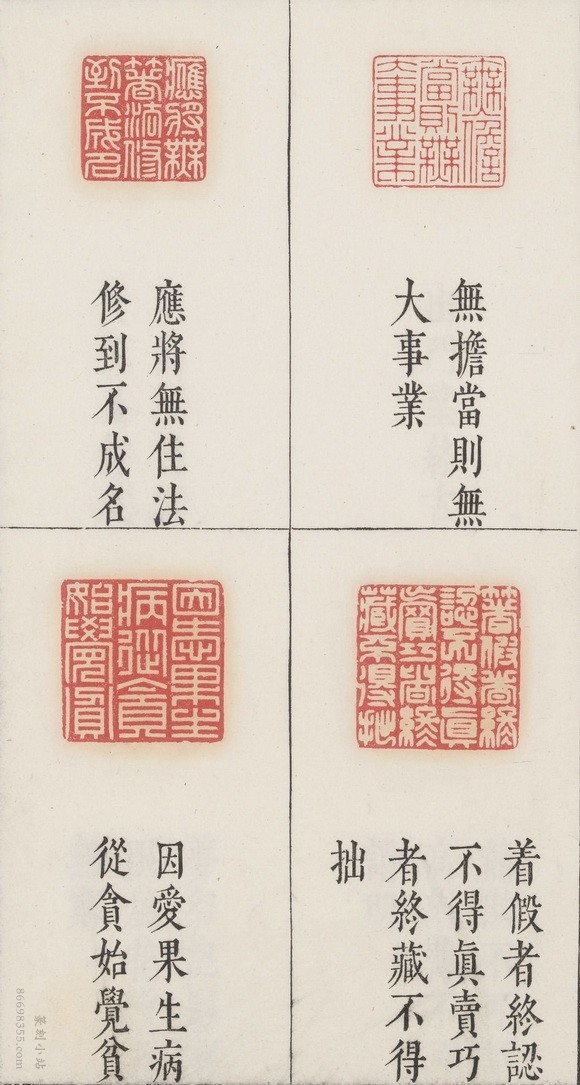 無擔當則無
大事業
應將無住法
修到不成名
着假者終認
不得眞賣巧
者終藏不得
拙
因愛果生病
從貪始覺貧
篆刻小站
86698355.com